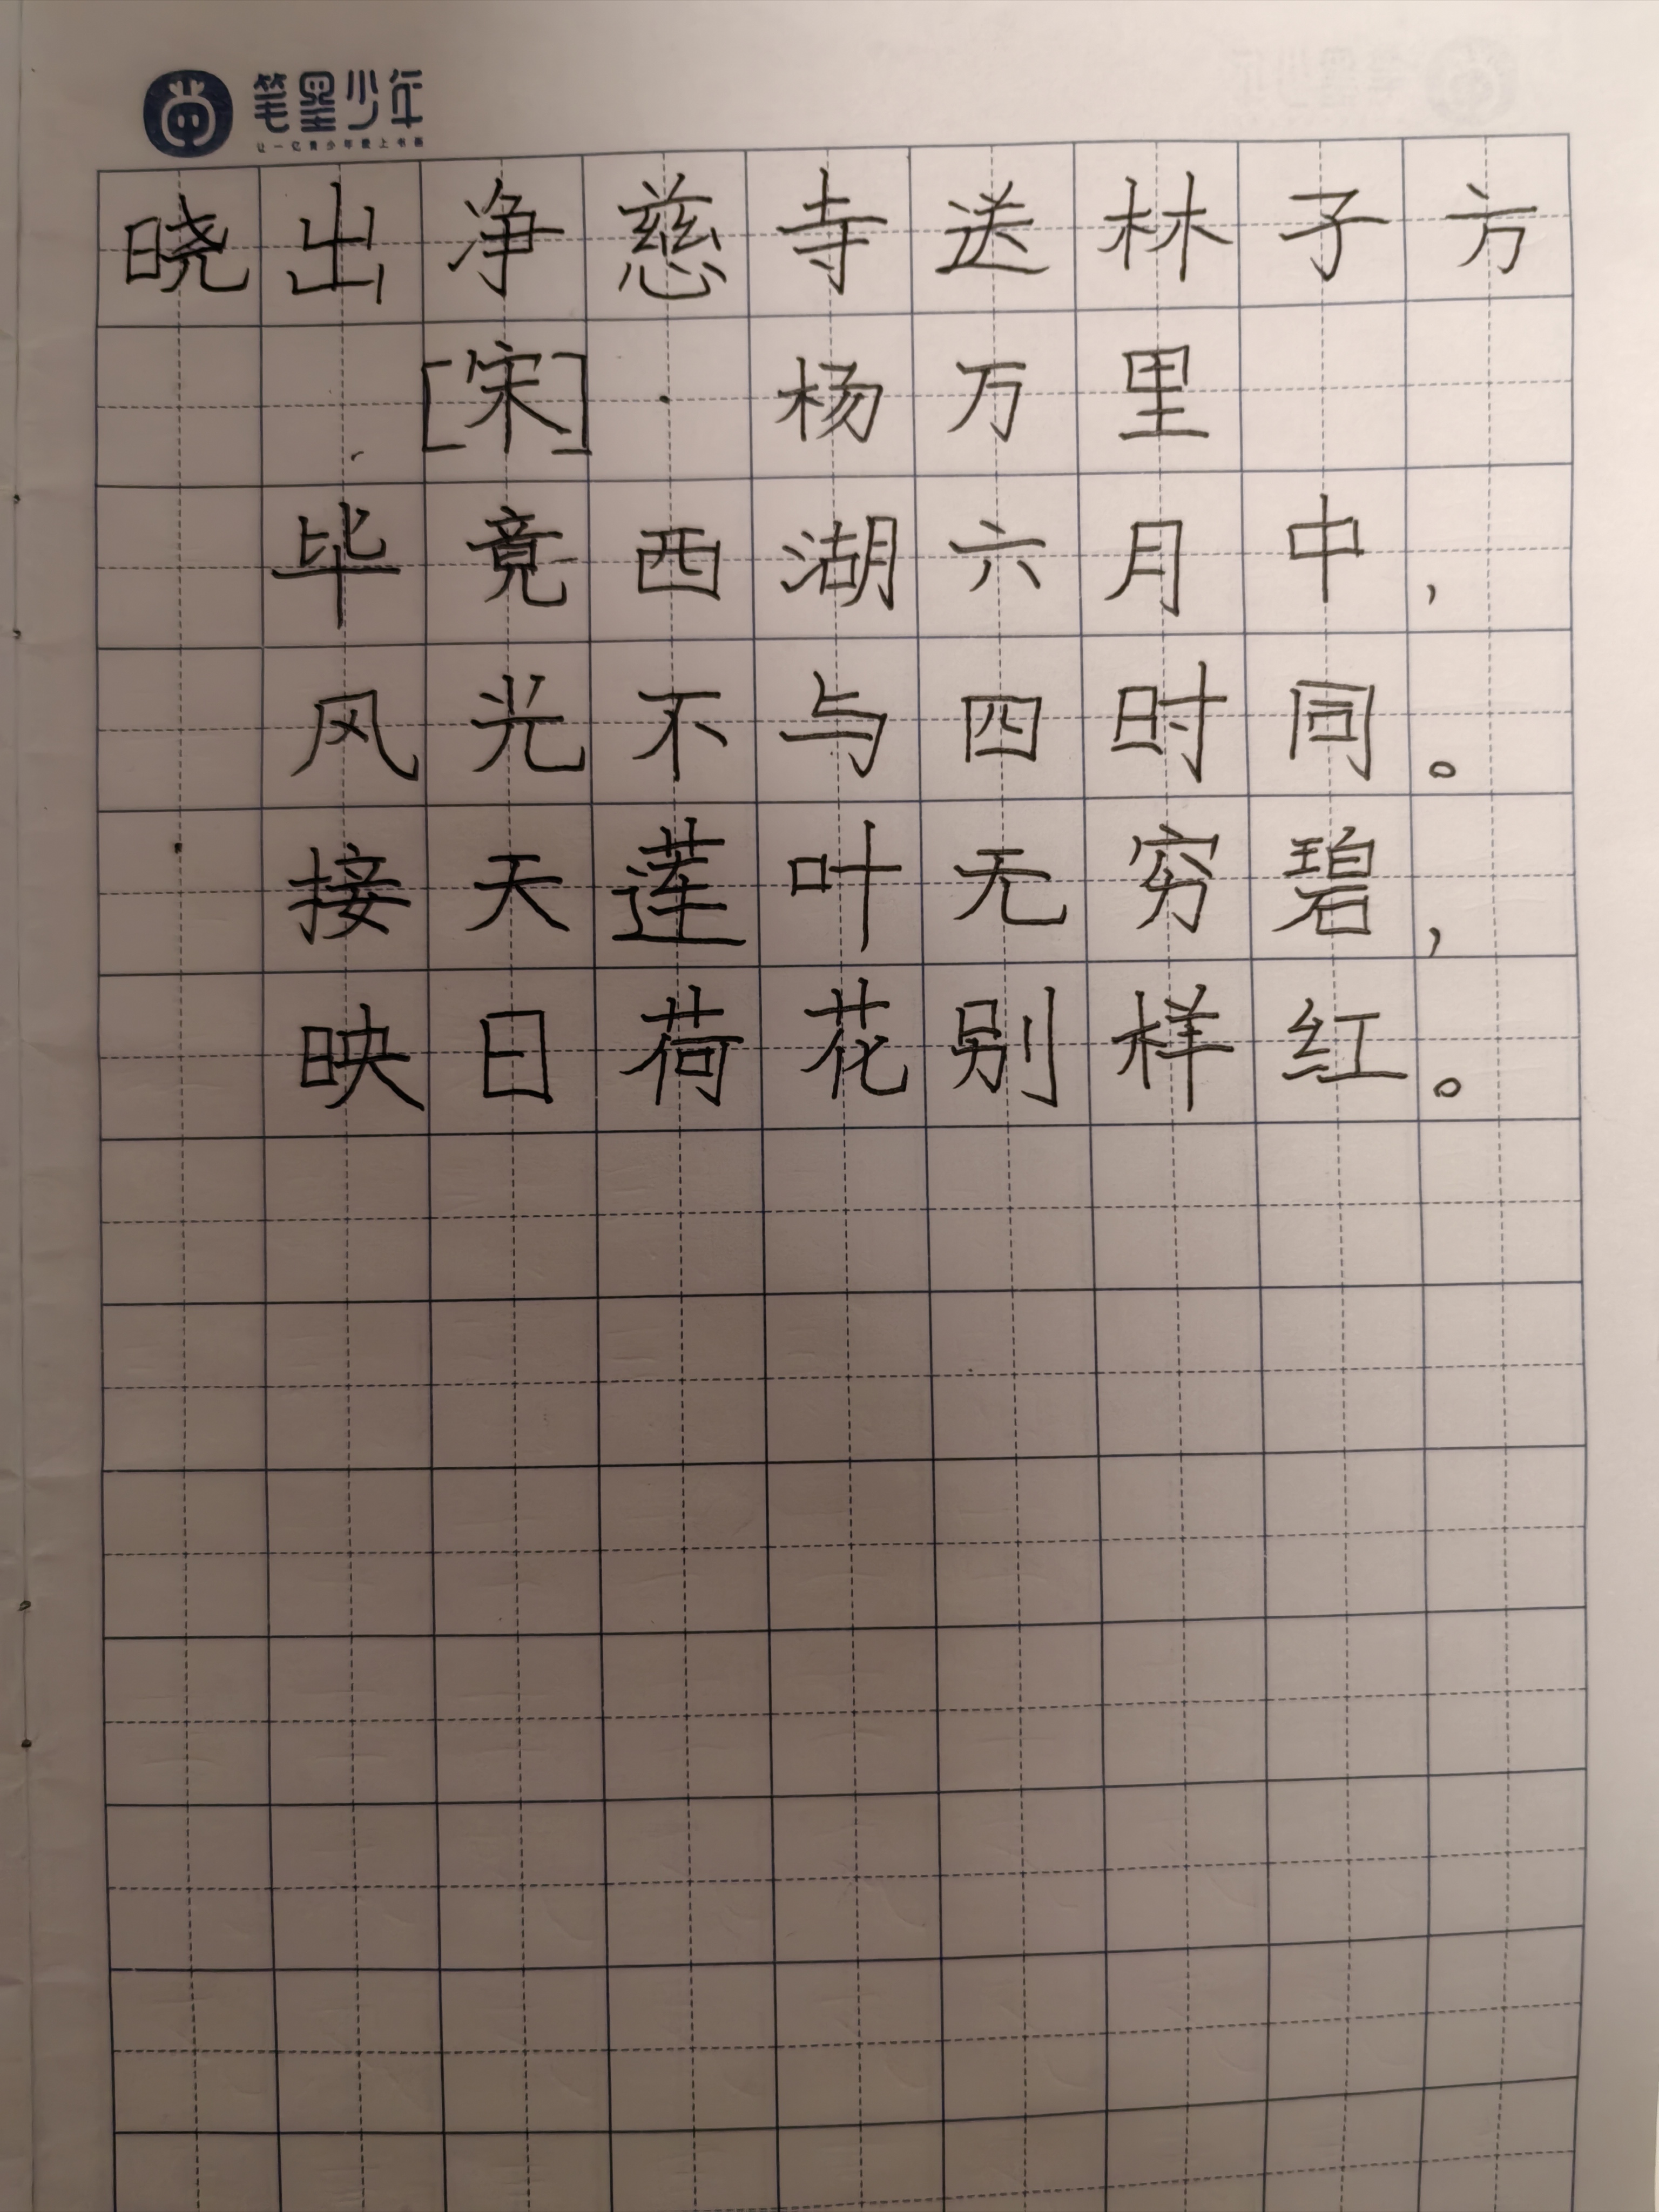 笔墨少年
让一亿青少年爱上书画
晓出净慈寺送林子方
[宋]·杨万里
毕竟西湖六月中，
风光不与四时同。
接天莲叶无穷碧，
映日荷花别样红。